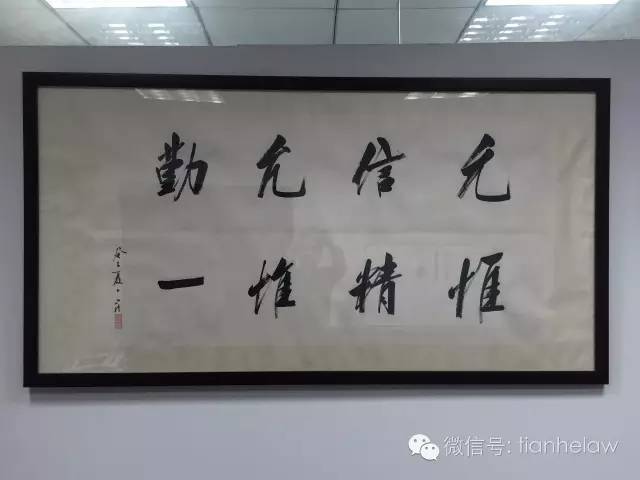 元信允勤
惟精惟一
癸巳夏
微信号: tianhelaw